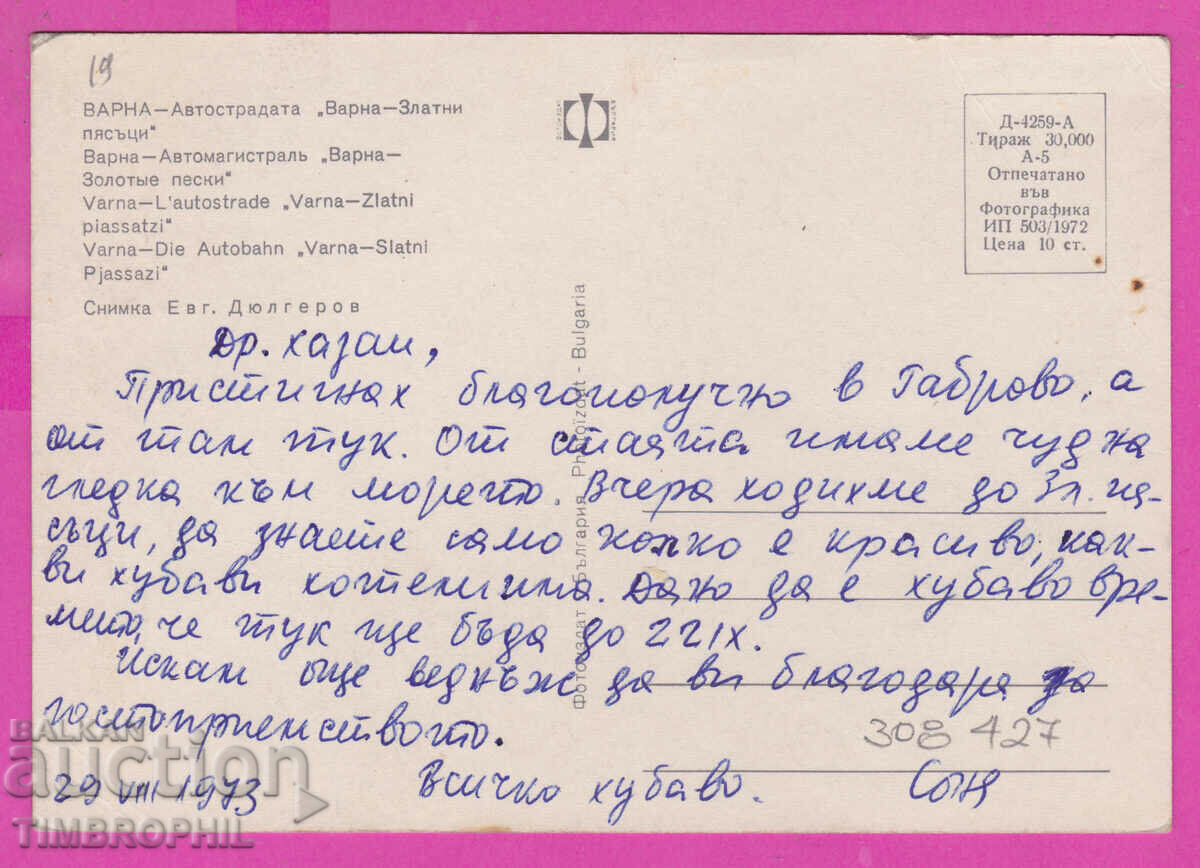 19
ВАРНА—Автострадата „Варна—Златни
пясъци"
Варна—Автомагистраль „Варна—
Золотые пески"
Varna—L'autostrade „Varna—Zlatni
piassatzi"
Varna—Die Autobahn „Varna—Slatni
Pjassazi"
Снимка Евг. Дюлгеров
Д-4259-А
Тираж 30,000
А-5
Отпечатано
във
Фотографика
ИП 503/1972
Цена 10 ст.
Фотоиздат България Photoizdat - Bulgaria
Др. Хазан,
Пристигнах благополучно в Габрово, а
от там тук. От стаята имаме чудна
гледка към морето. Вчера ходихме до Зл. пя-
съци, да знаете само колко е красиво, как-
ви хубави хотелища. Дано да е хубаво вре-
мето, че тук ще бъда до 22 IX.
Искам още веднъж да ви благодаря за
гостоприемството.
29 VIII 1973 Всичко хубаво. Соня
308 427
BALKAN
auction
TIMBROPHIL